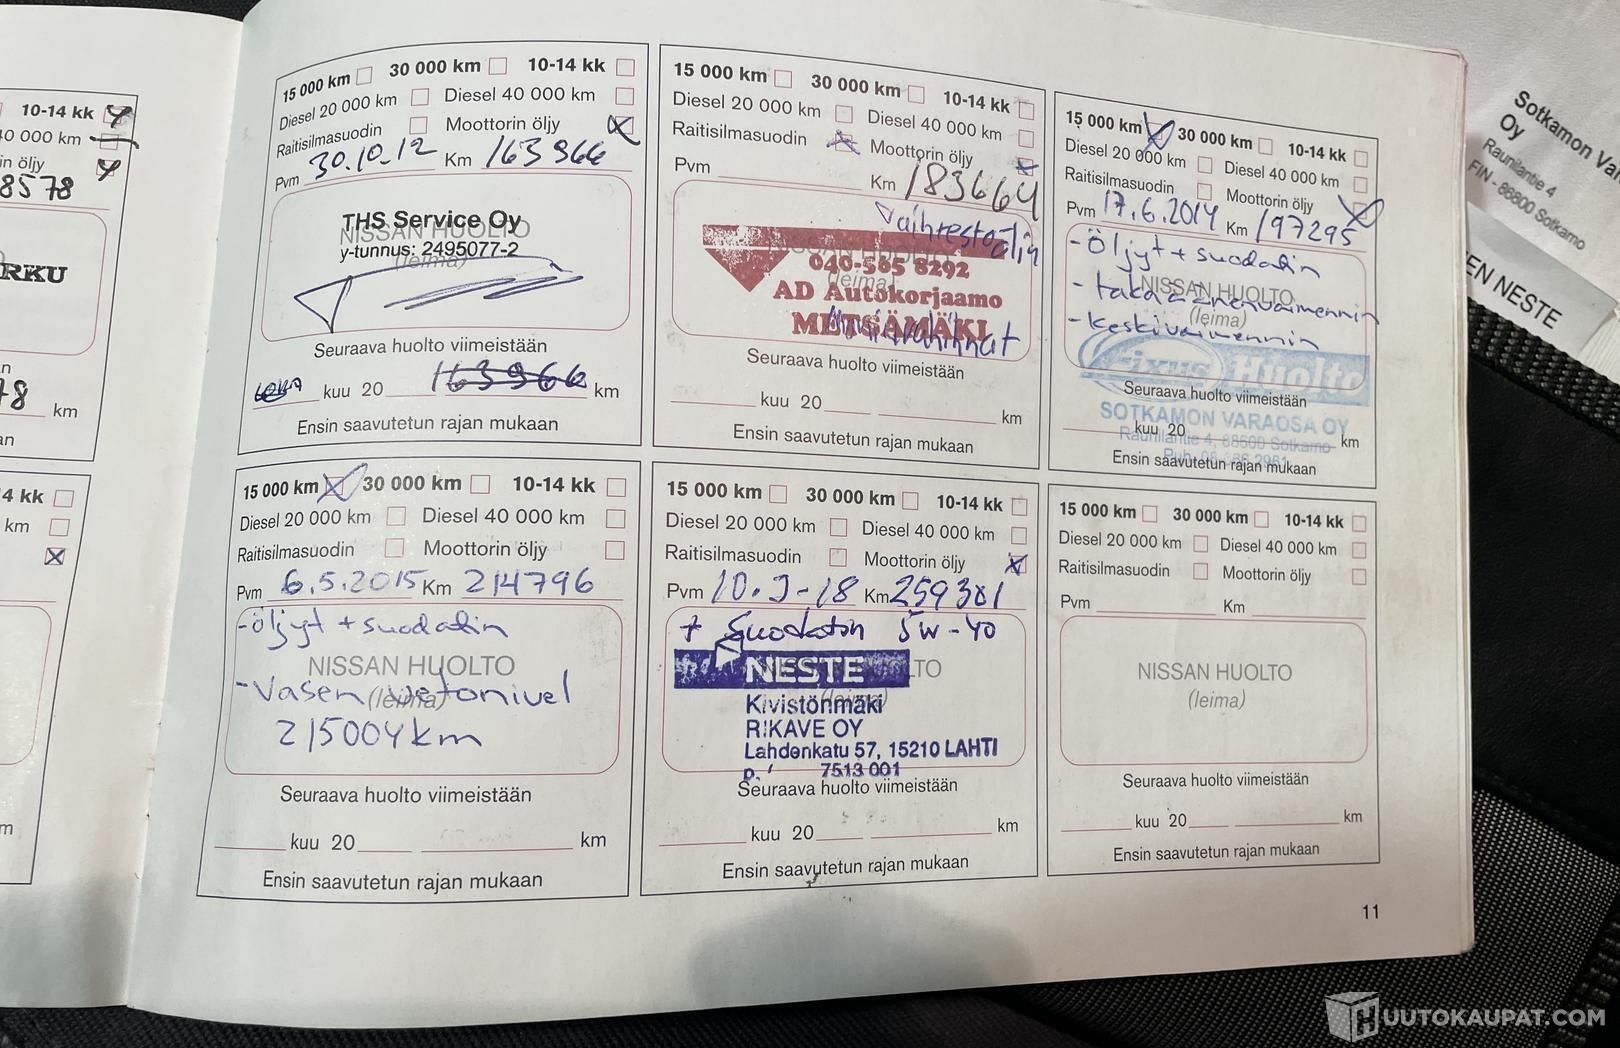 10-14 kk
40 000 km
in öljy
8578
RKU
78 km
4 kk
km
15 000 km 30 000 km 10-14 kk
Diesel 20 000 km Diesel 40 000 km
Raitisilmasuodin Moottorin öljy
Pvm 30.10.12 Km 163966
THS Service Oy
NISSAN HUOLTO
y-tunnus: 2495077-2
(leima)
Seuraava huolto viimeistään
kuu 20 163966 km
Ensin saavutetun rajan mukaan
15 000 km 30 000 km 10-14 kk
Diesel 20 000 km Diesel 40 000 km
Raitisilmasuodin Moottorin öljy
Pvm Km 183664
040-565 8292
(leima)
AD Autokorjaamo
METSÄMÄKI
Seuraava huolto viimeistään
kuu 20 km
Ensin saavutetun rajan mukaan
15 000 km 30 000 km 10-14 kk
Diesel 20 000 km Diesel 40 000 km
Raitisilmasuodin Moottorin öljy
Pvm 17.6.2014 Km 197295
- Öljyt + suodatin
NISSAN HUOLTO
- takaäänenvaimennin
(leima)
- keskivaimennin
Fixus Huolto
Seuraava huolto viimeistään
SOTKAMON VARAOSA OY
kuu 20 km
Raunilantie 4, 88600 Sotkamo
Ensin saavutetun rajan mukaan
15 000 km 30 000 km 10-14 kk
Diesel 20 000 km Diesel 40 000 km
Raitisilmasuodin Moottorin öljy
Pvm 6.5.2015 Km 214796
-öljyt + suodatin
NISSAN HUOLTO
- Vasen vetonivel
(leima)
215004km
Seuraava huolto viimeistään
kuu 20 km
Ensin saavutetun rajan mukaan
15 000 km 30 000 km 10-14 kk
Diesel 20 000 km Diesel 40 000 km
Raitisilmasuodin Moottorin öljy
Pvm 10.9-18 Km 259301
+ Suodatin 5W-40
NESTE
Kivistönmäki
RIKAVE OY
Lahdenkatu 57, 15210 LAHTI
p. 7513 001
Seuraava huolto viimeistään
kuu 20 km
Ensin saavutetun rajan mukaan
15 000 km 30 000 km 10-14 kk
Diesel 20 000 km Diesel 40 000 km
Raitisilmasuodin Moottorin öljy
Pvm Km
NISSAN HUOLTO
(leima)
Seuraava huolto viimeistään
kuu 20 km
Ensin saavutetun rajan mukaan
11
Sotkamon Var
Oy
Raunilantie 4
FIN - 88600 Sotkamo
EN NESTE
HUUTOKAUPAT.COM